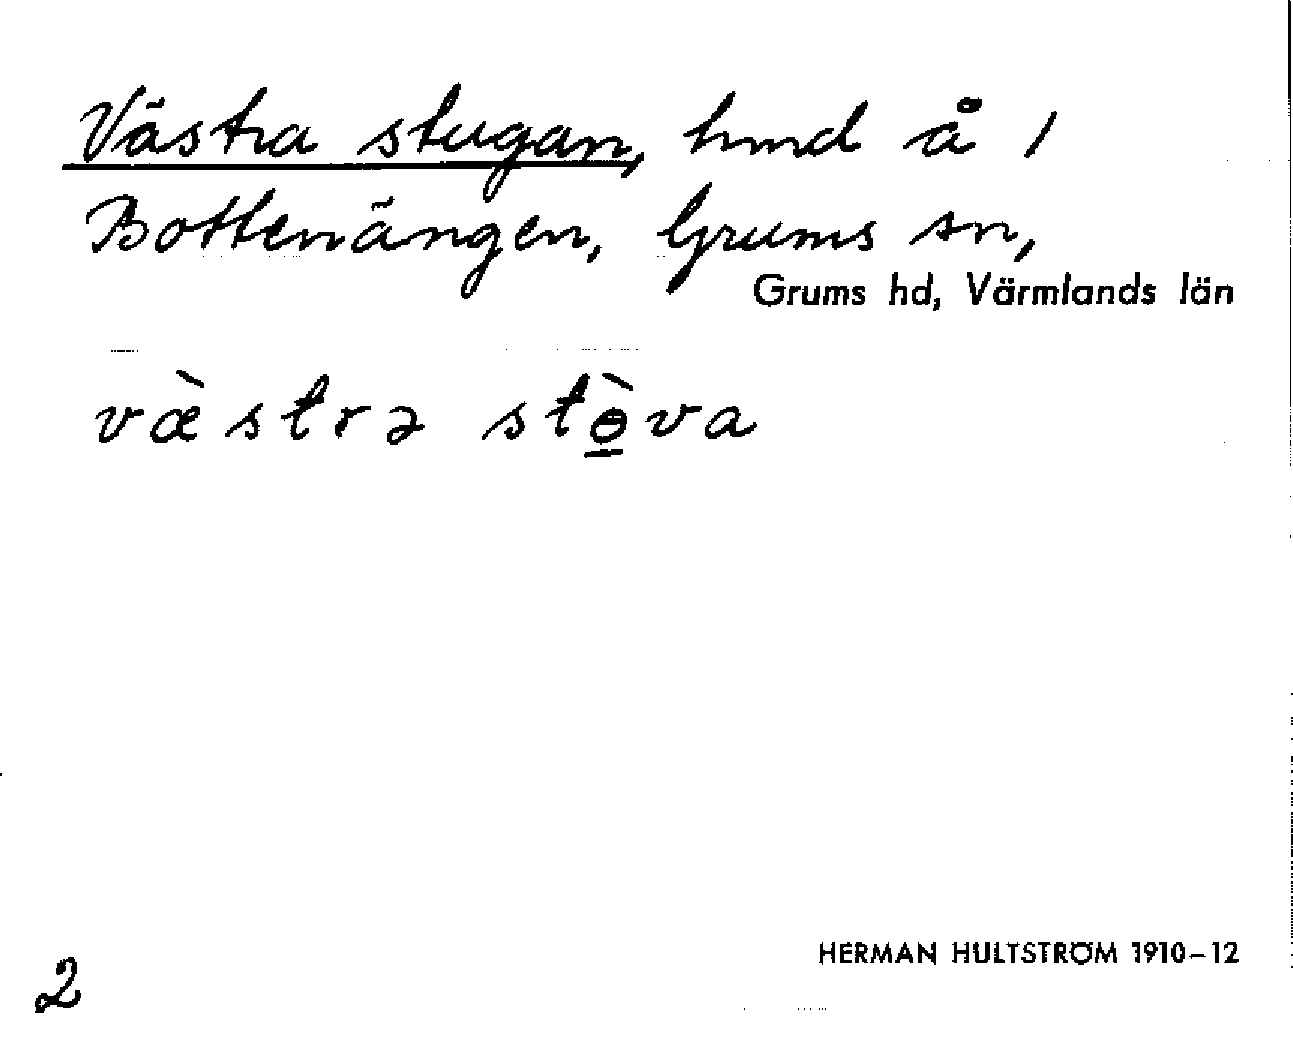 Västra stugan, hmd å 1
Bottenängen, Grums sn,
Grums hd, Värmlands län
væ̀strə stɵ̠̀va
HERMAN HULTSTRÖM 1910–12
2